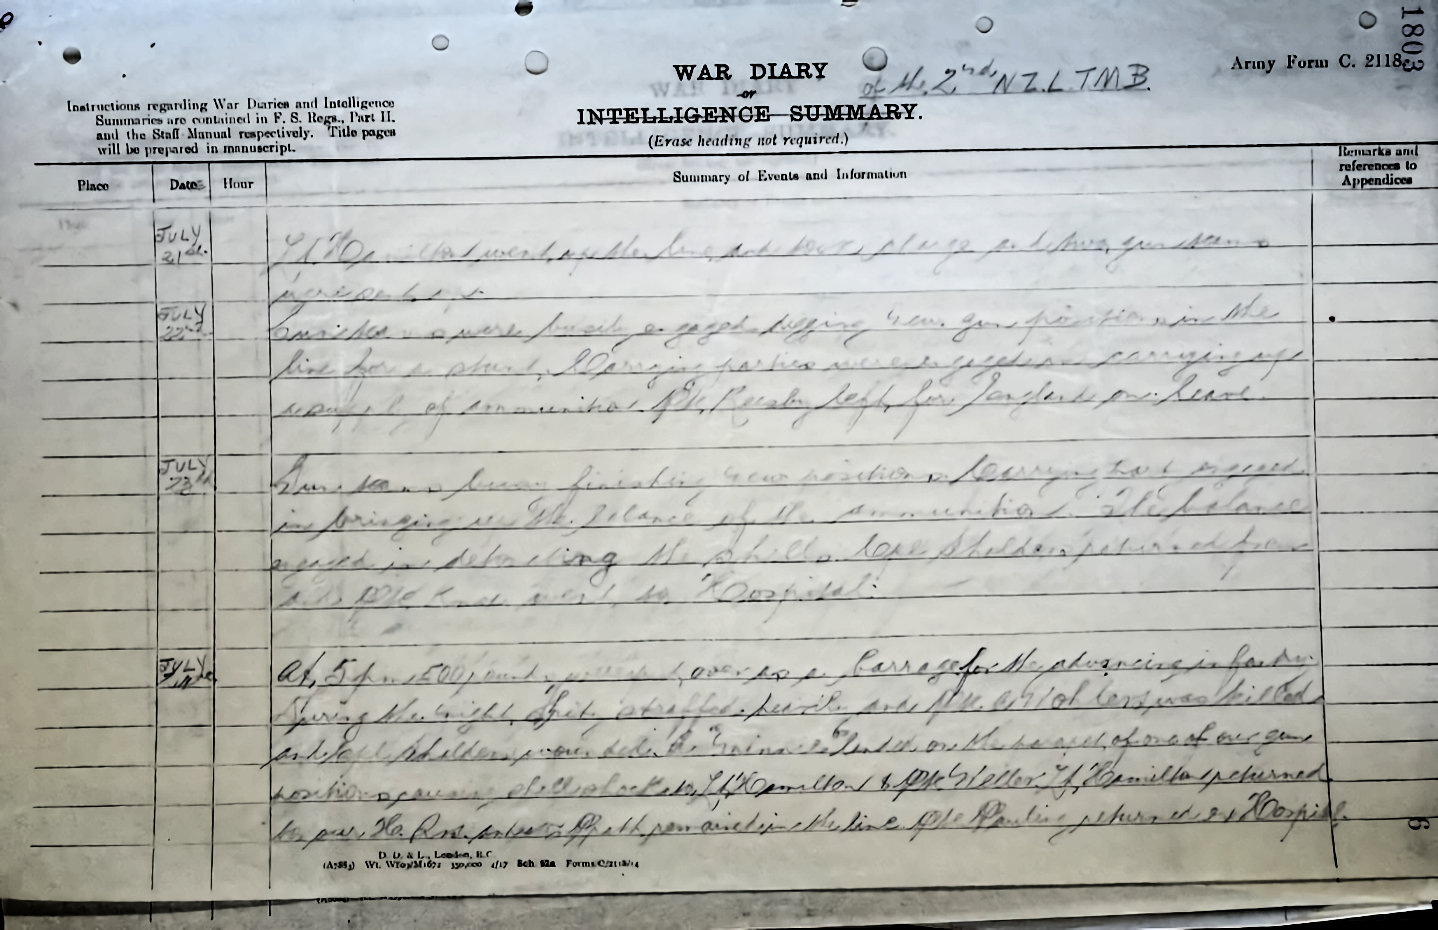 1803
WAR DIARY
of the 2nd N.Z.L.T.M.B.
Army Form C. 2118.
or
INTELLIGENCE SUMMARY.
(Erase heading not required.)
Instructions regarding War Diaries and Intelligence
Summaries are contained in F. S. Regs., Part II.
and the Staff Manual respectively. Title pages
will be prepared in manuscript.
Place Date Hour Summary of Events and Information Remarks and
references to
Appendices
JULY
21st Lt Hamilton went up the line and took charge and two gun teams
were sent
JULY
22nd Gun teams were busily engaged digging new gun positions in the
line for a stunt. Carrying parties were engaged in carrying up
supply of ammunition. Pte left for England on leave.
JULY
23rd Gun teams busy finishing new positions. Carrying engaged
in bringing up the balance of the ammunition. The balance
engaged in the shells. Cpl Sheldon returned from
Pte went to Hospital.
JULY
At 5 pm 500 rounds went over as a barrage for the advancing infantry.
During the night Fritz straffed heavily and Pte was killed
and Cpl Sheldon wounded. A "minnie" landed on the parapet of one of our gun
positions causing shell shock to Lt Hamilton & Pte Lt Hamilton returned
to our H. Qrs. remained in the line. Pte Pauling returned ex Hospital.
6
D. D. & L., London, E.C.
(A7883) Wt. W809/M1672 350,000 4/17 Sch. 52a Forms/C/2118/14